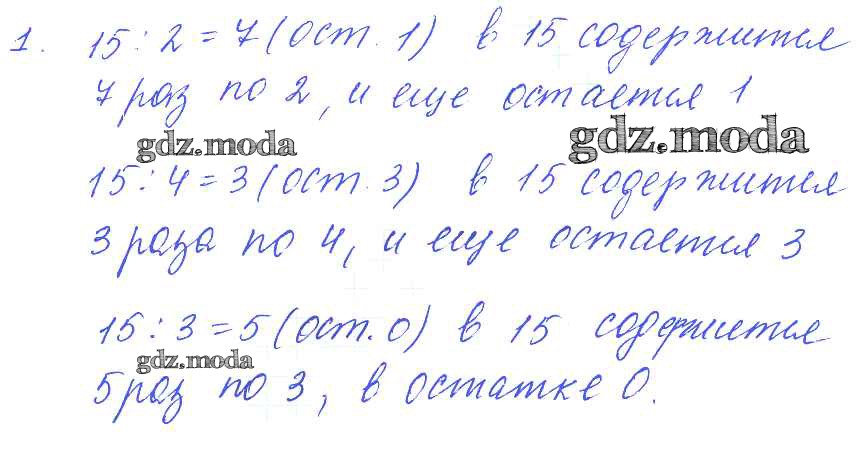 1. 15 : 2 = 7 (ост. 1) в 15 содержится
7 раз по 2, и еще остается 1
gdz.moda gdz.moda
15 : 4 = 3 (ост. 3) в 15 содержится
3 раза по 4, и еще остается 3
15 : 3 = 5 (ост. 0) в 15 содержится
gdz.moda
5 раз по 3, в остатке 0.